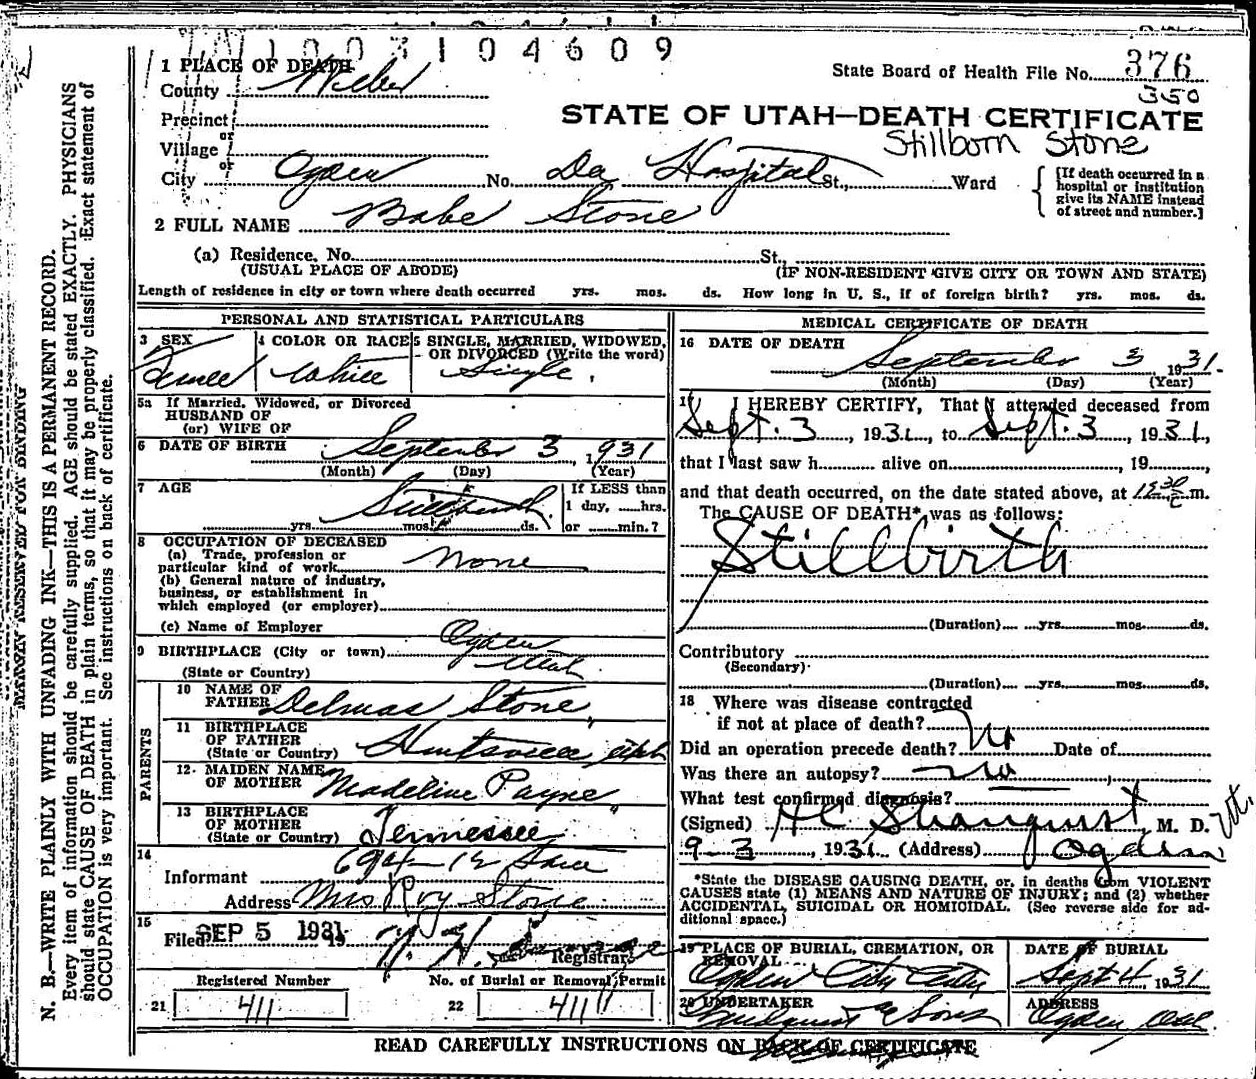 1003104609
1 PLACE OF DEATH
State Board of Health File No. 376
350
County Weber
STATE OF UTAH—DEATH CERTIFICATE
Precinct
or
Village
or
Stillborn Stone
City Ogden No. Dee Hospital St., Ward
[If death occurred in a
hospital or institution
give its NAME instead
of street and number.]
2 FULL NAME Babe Stone
(a) Residence. No. St.,
(USUAL PLACE OF ABODE) (IF NON-RESIDENT GIVE CITY OR TOWN AND STATE)
Length of residence in city or town where death occurred yrs. mos. ds. How long in U. S., if of foreign birth? yrs. mos. ds.
PERSONAL AND STATISTICAL PARTICULARS
3 SEX Female
4 COLOR OR RACE White
5 SINGLE, MARRIED, WIDOWED,
OR DIVORCED (Write the word)
Single.
5a If Married, Widowed, or Divorced
HUSBAND OF
(or) WIFE OF
6 DATE OF BIRTH September 3, 1931
(Month) (Day) (Year)
7 AGE Stillbirth
yrs. mos. ds.
If LESS than
1 day, hrs.
or min.?
8 OCCUPATION OF DECEASED
(a) Trade, profession or
particular kind of work none
(b) General nature of industry,
business, or establishment in
which employed (or employer)
(c) Name of Employer
9 BIRTHPLACE (City or town) Ogden
(State or Country) Utah
PARENTS
10 NAME OF
FATHER Delmas Stone
11 BIRTHPLACE
OF FATHER
(State or Country) Huntsville, Utah
12 MAIDEN NAME
OF MOTHER Madeline Payne
13 BIRTHPLACE
OF MOTHER
(State or Country) Tennessee
14
Informant
Address Mrs Roy Stone
15
Filed SEP 5 1931
Registrar
Registered Number
21 411
No. of Burial or Removal Permit
22 411
MEDICAL CERTIFICATE OF DEATH
16 DATE OF DEATH
September 3 1931.
(Month) (Day) (Year)
17 I HEREBY CERTIFY, That I attended deceased from
Sept. 3, 1931, to Sept. 3, 1931,
that I last saw h alive on , 19 ,
and that death occurred, on the date stated above, at m.
The CAUSE OF DEATH* was as follows:
Stillbirth
(Duration) yrs. mos. ds.
Contributory
(Secondary)
(Duration) yrs. mos. ds.
18 Where was disease contracted
if not at place of death?
Did an operation precede death? No Date of
Was there an autopsy? no
What test confirmed diagnosis?
(Signed) H C Stranquist, M. D.
9-3, 1931. (Address) Ogden Ut.
*State the DISEASE CAUSING DEATH, or, in deaths from VIOLENT
CAUSES state (1) MEANS AND NATURE OF INJURY; and (2) whether
ACCIDENTAL, SUICIDAL OR HOMICIDAL. (See reverse side for ad-
ditional space.)
19 PLACE OF BURIAL, CREMATION, OR
REMOVAL
Ogden City Cem
DATE OF BURIAL
Sept 4, 1931
20 UNDERTAKER
Lindquist & Sons
ADDRESS
Ogden, Utah
READ CAREFULLY INSTRUCTIONS ON BACK OF CERTIFICATE
MARGIN RESERVED FOR BINDING
N. B.—WRITE PLAINLY WITH UNFADING INK—THIS IS A PERMANENT RECORD.
Every item of information should be carefully supplied. AGE should be stated EXACTLY. PHYSICIANS
should state CAUSE OF DEATH in plain terms, so that it may be properly classified. Exact statement of
OCCUPATION is very important. See instructions on back of certificate.